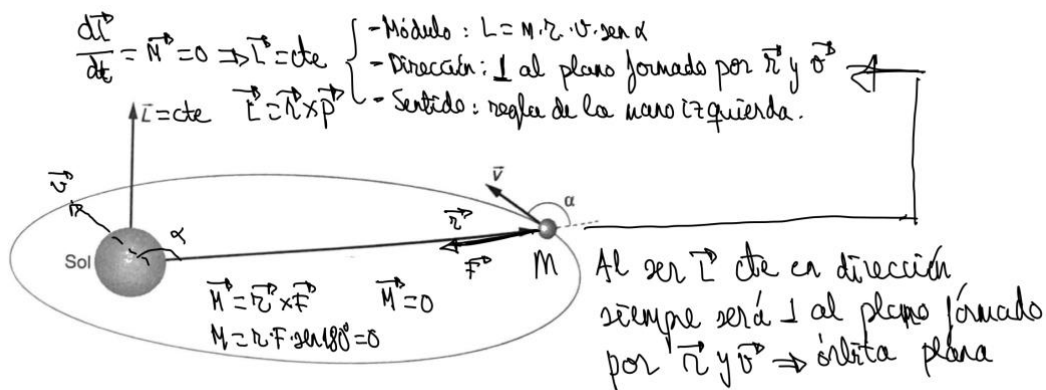 dL⃗/dt = M⃗ = 0 ⇒ L⃗ = cte
- Módulo : L = m·r·v·sen α
- Dirección : ⊥ al plano formado por r⃗ y v⃗
- Sentido : regla de la mano izquierda.
L̄ = cte L⃗ = r⃗ × p⃗
v⃗
α
Sol
r⃗
F⃗
v̄
α
M
M⃗ = r⃗ × F⃗ M⃗ = 0
M = r·F·sen 180° = 0
Al ser L⃗ cte en dirección
siempre será ⊥ al plano formado
por r⃗ y v⃗ ⇒ órbita plana